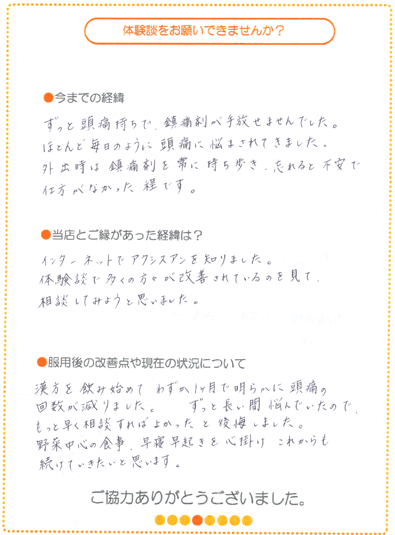 体験談をお願いできませんか？
●今までの経緯
ずっと頭痛持ちで、鎮痛剤が手放せませんでした。
ほとんど毎日のように頭痛に悩まされてきました。
外出時は鎮痛剤を常に持ち歩き、忘れると不安で
仕方がなかった程です。
●当店とご縁があった経緯は？
インターネットでアクシスアンを知りました。
体験談で多くの方々が改善されているのを見て、
相談してみようと思いました。
●服用後の改善点や現在の状況について
漢方を飲み始めて わずか1ヶ月で明らかに頭痛の
回数が減りました。 ずっと長い間悩んでいたので、
もっと早く相談すればよかったと後悔しました。
野菜中心の食事、早寝早起きを心掛け これからも
続けていきたいと思います。
ご協力ありがとうございました。